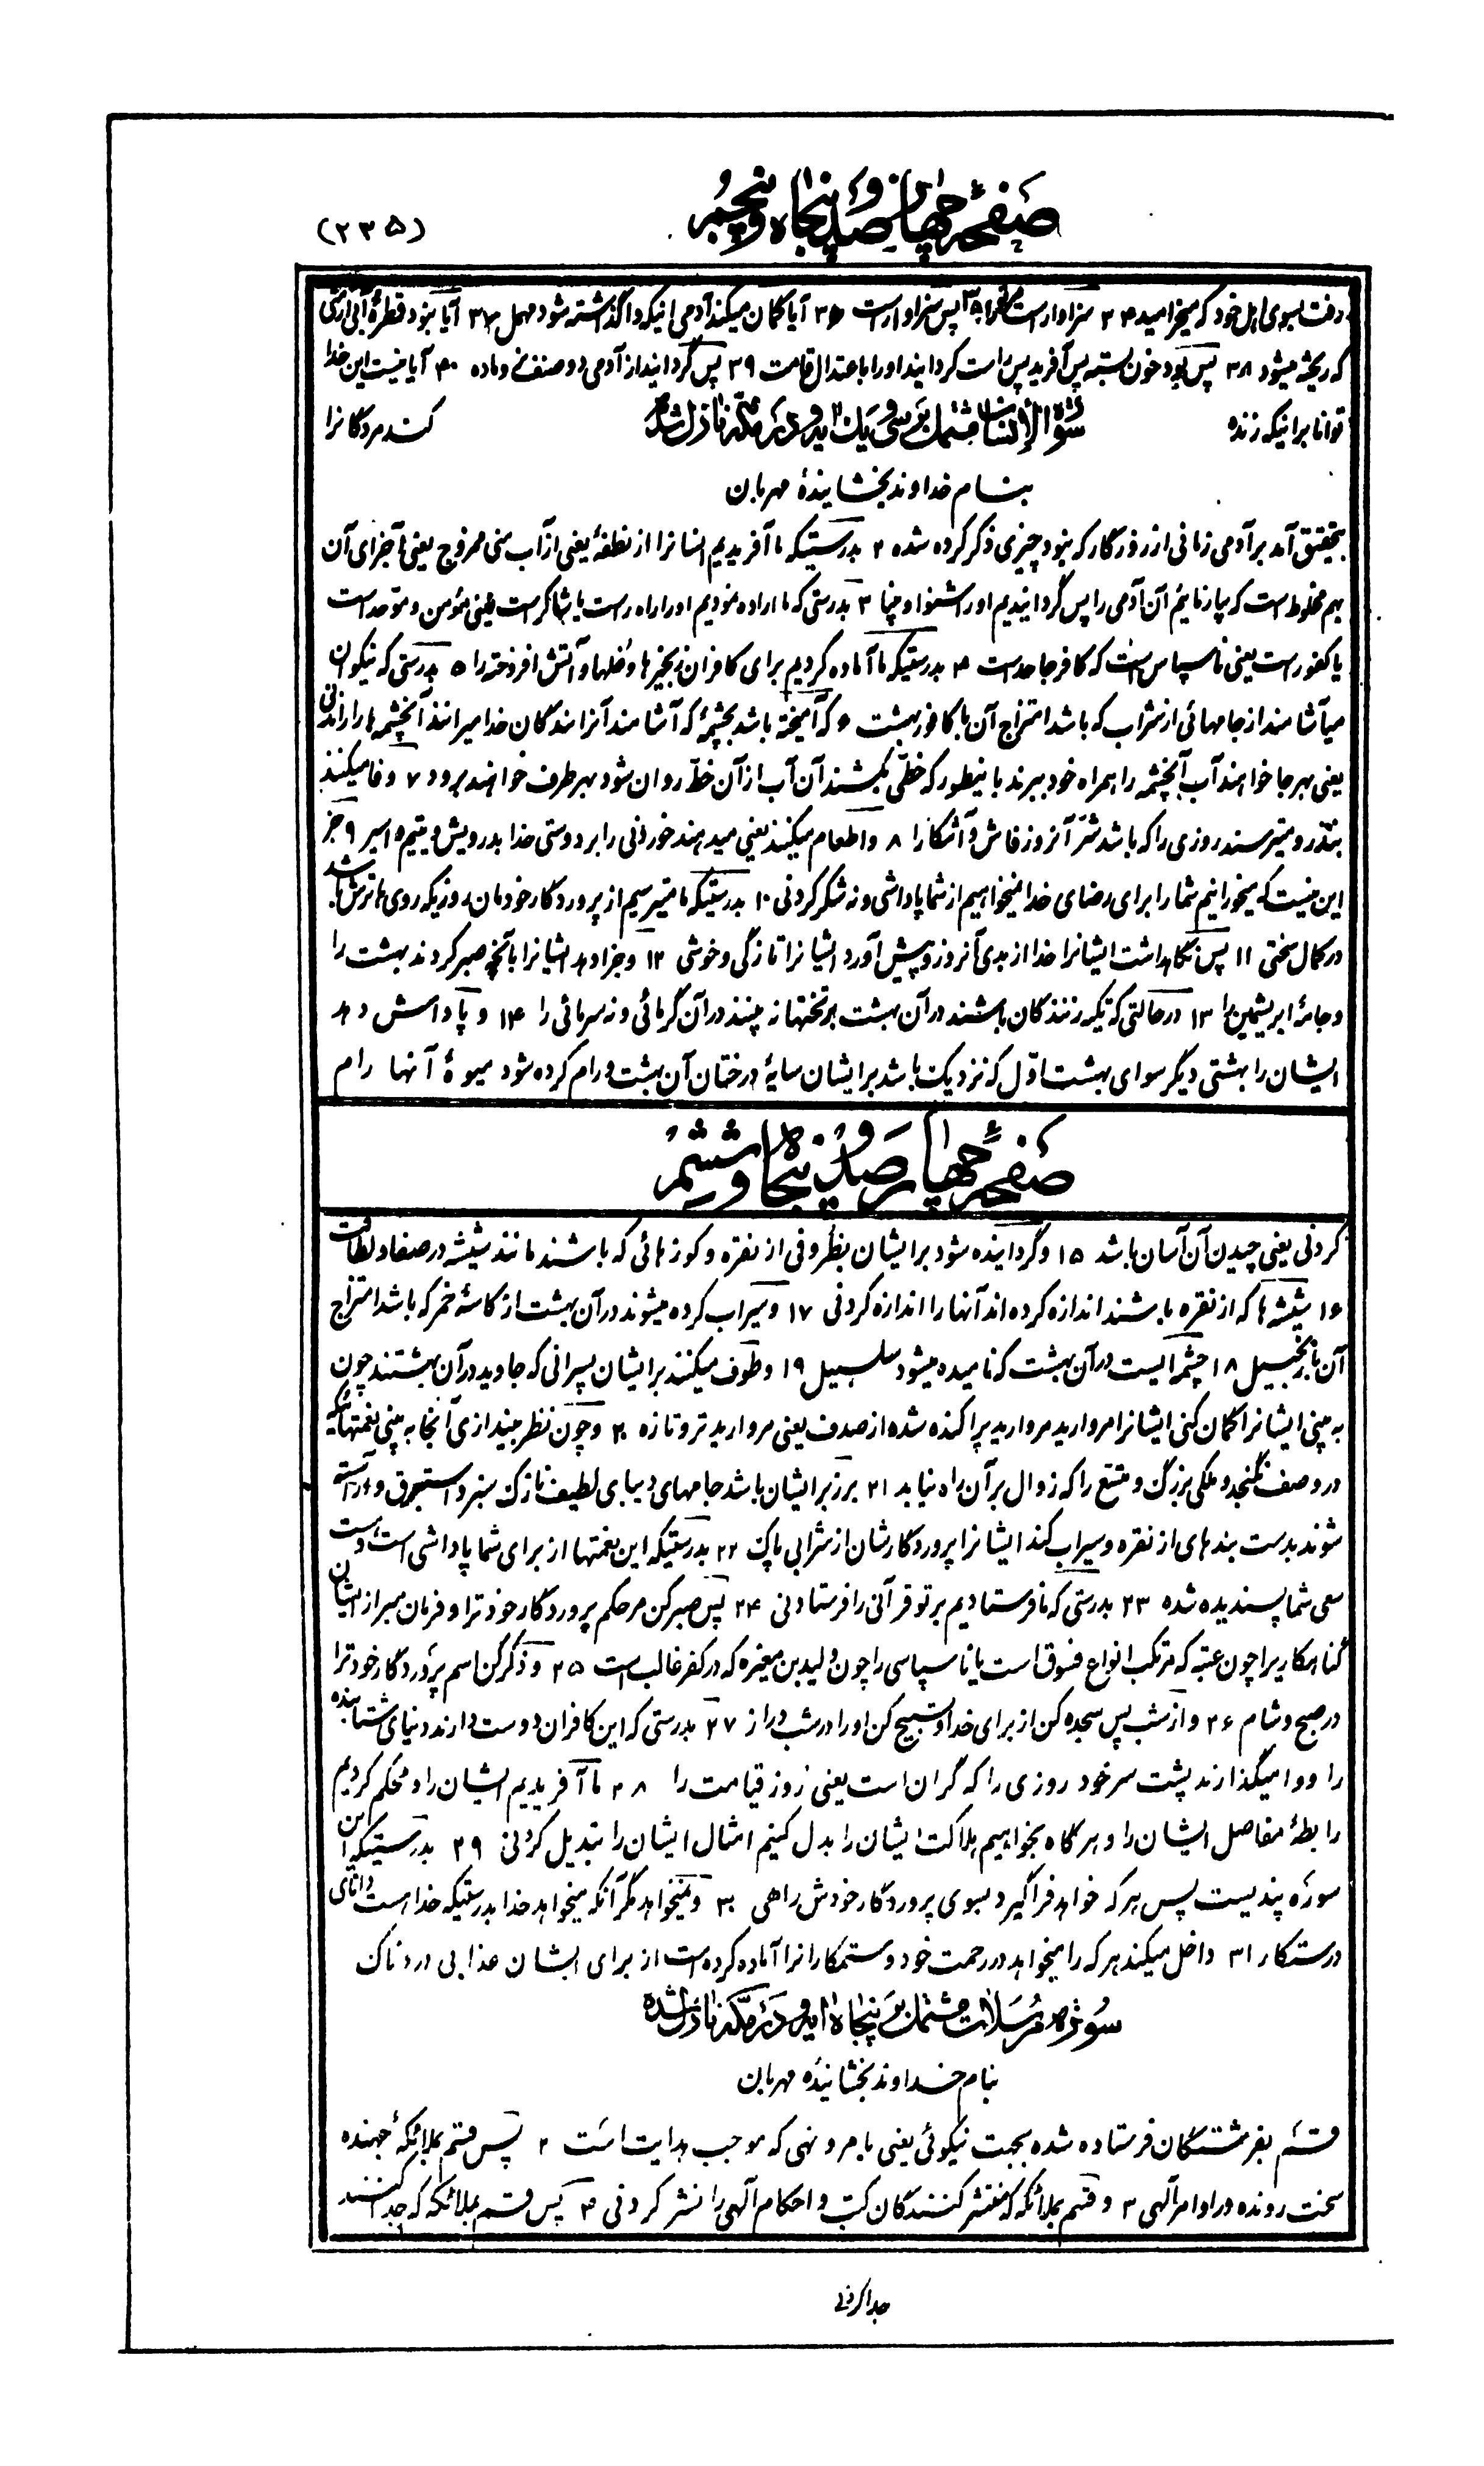 صفحۀ چهارصد و پنجاه و پنجم
(۲۳۵)
رفت بسوی اهل خود که میخرامید ۳۴ سزاوار است مر ترا ۳۵ پس سزاوار است ۳۶ آیا گمان میکند آدمی اینکه واگذاشته شود مهمل ۳۷ آیا نبود قطرۀ آبی از منی
که ریخته میشود ۳۸ پس بود خون بسته پس آفرید پس راست گردانید او را باعتدال قامت ۳۹ پس گردانید از آدمی دو صنف نر و ماده ۴۰ آیا نیست این خدا
توانا بر اینکه زنده کند مردگانرا
سورة الانسان مشتمل بر سی و یک آیه و در مکه نازل شده
بنام خداوند بخشایندۀ مهربان
بتحقیق آمد بر آدمی زمانی از روزگار که نبود چیزی ذکر کرده شده ۲ بدرستیکه ما آفریدیم انسانرا از نطفۀ یعنی از آب منی ممزوج یعنی آجزای آن
بهم مخلوط است که بیازمائیم آن آدمی را پس گردانیدیم او را شنوا و بینا ۳ بدرستی که ما اراده نمودیم او را راه راست یا شاکر است یعنی مؤمن و موحد است
یا کفور است یعنی ناسپاس است که کافر جاحد است ۴ بدرستیکه ما آماده کردیم برای کافران زنجیرها و غلها و آتش افروخته را ۵ بدرستی که نیکوان
میآشامند از جامهائی از شراب که باشد امتزاج آن با کافور بهشت ۶ که آمیخته باشد بچشمۀ که آشامند آنرا بندگان خدا میرانند آنچشمه ها را راندنی
یعنی بهر جا خواهند آب آنچشمه را همراه خود ببرند باینطور که خطی بکشند آن آب از آن خط روان شود بهر طرف خواهند برود ۷ وفا میکنند
بنذر و میترسند روزی را که باشد شر آنروز فاش و آشکارا ۸ و اطعام میکنند یعنی میدهند خوردنی را بر دوستی خدا بدرویش و یتیم و اسیر ۹ جز
این نیست که میخورانیم شما را برای رضای خدا نمیخواهیم از شما پاداشی و نه شکر کردنی ۱۰ بدرستیکه ما میترسیم از پروردگار خودمان روزیکه روی ها ترش باشد
در کمال سختی ۱۱ پس نگاهداشت ایشانرا خدا از بدی آنروز و پیش آورد ایشانرا تازگی و خوشی ۱۲ و جزا دهد ایشانرا بآنچه صبر کردند بهشت را
و جامۀ ابریشمین را ۱۳ در حالتی که تکیه زنندگان باشند در آن بهشت بر تختها نه بینند در آن گرمائی و نه سرمائی را ۱۴ و پاداش دهد
ایشان را بهشتی دیگر سوای بهشت اول که نزدیک باشد بر ایشان سایۀ درختان آن بهشت و رام کرده شود میوۀ آنها رام
صفحۀ چهارصد و پنجاه و ششم
کردنی یعنی چیدن آن آسان باشد ۱۵ و گردانیده شود بر ایشان بظروفی از نقره و کوزهائی که باشند مانند شیشه در صفا و لطافت
۱۶ شیشه ها که از نقره باشند اندازه کرده اند آنها را اندازه کردنی ۱۷ و سیراب کرده میشوند در آن بهشت از کاسۀ خمر که باشد امتزاج
آن با زنجبیل ۱۸ چشمه ایست در آن بهشت که نامیده میشود سلسبیل ۱۹ و طوف میکنند بر ایشان پسرانی که جاوید در آن بهشتند چون
به بینی ایشانرا گمان کنی ایشانرا مروارید مروارید پراکنده شده از صدف یعنی مروارید تر و تازه ۲۰ و چون نظر بیندازی آنجا به بینی نعمتهائیکه
در وصف نگنجد و ملکی بزرگ و متسع را که زوال بر آن راه نیابد ۲۱ بر زبر ایشان باشد جامهای دیبای لطیف نازک سبز و استبرق و آراسته
شوند بدست بندهای از نقره و سیراب کند ایشانرا پروردگارشان از شرابی پاک ۲۲ بدرستیکه این نعمتها از برای شما پاداشی است و هست
سعی شما پسندیده شده ۲۳ بدرستی که ما فرستادیم بر تو قرآنی را فرستادنی ۲۴ پس صبر کن مر حکم پروردگار خود ترا و فرمان مبر از ایشان
گناهکاریرا چون عتبه که مرتکب انواع فسوق است یا ناسپاسی را چون ولید بن مغیره که در کفر غالب است ۲۵ و ذکر کن اسم پروردگار خود ترا
در صبح و شام ۲۶ و از شب پس سجده کن از برای خدا و تسبیح کن او را در شب دراز ۲۷ بدرستی که این کافران دوست دارند دنیای شتابنده
را و وامیگذارند پشت سر خود روزی را که گران است یعنی روز قیامت را ۲۸ ما آفریدیم ایشان را و محکم کردیم
رابطۀ مفاصل ایشان را و هر گاه بخواهیم هلاکت ایشان را بدل کنیم امثال ایشان را تبدیل کردنی ۲۹ بدرستیکه این
سوره پندیست پس هر که خواهد فراگیرد بسوی پروردگار خودش راهی ۳۰ و نمیخواهد مگر آنکه میخواهد خدا بدرستیکه خدا است دانای
درستکار ۳۱ داخل میکند هر که را میخواهد در رحمت خود و ستمکارانرا آماده کرده است از برای ایشان عذابی دردناک
سورۀ مرسلات مشتمل بر پنجاه آیه و در مکه نازل شده
بنام خداوند بخشایندۀ مهربان
قسم بفرشتگان فرستاده شده بجهت نیکوئی یعنی بامر و نهی که موجب هدایت است ۲ پس قسم بملائکۀ جهنده
سخت رونده در اوامر آلهی ۳ و قسم بملائکه که منتشر کنندگان کتب و احکام آلهی را نشر کردنی ۴ پس قسم بملائکه که جدا کنند
جدا کردنی